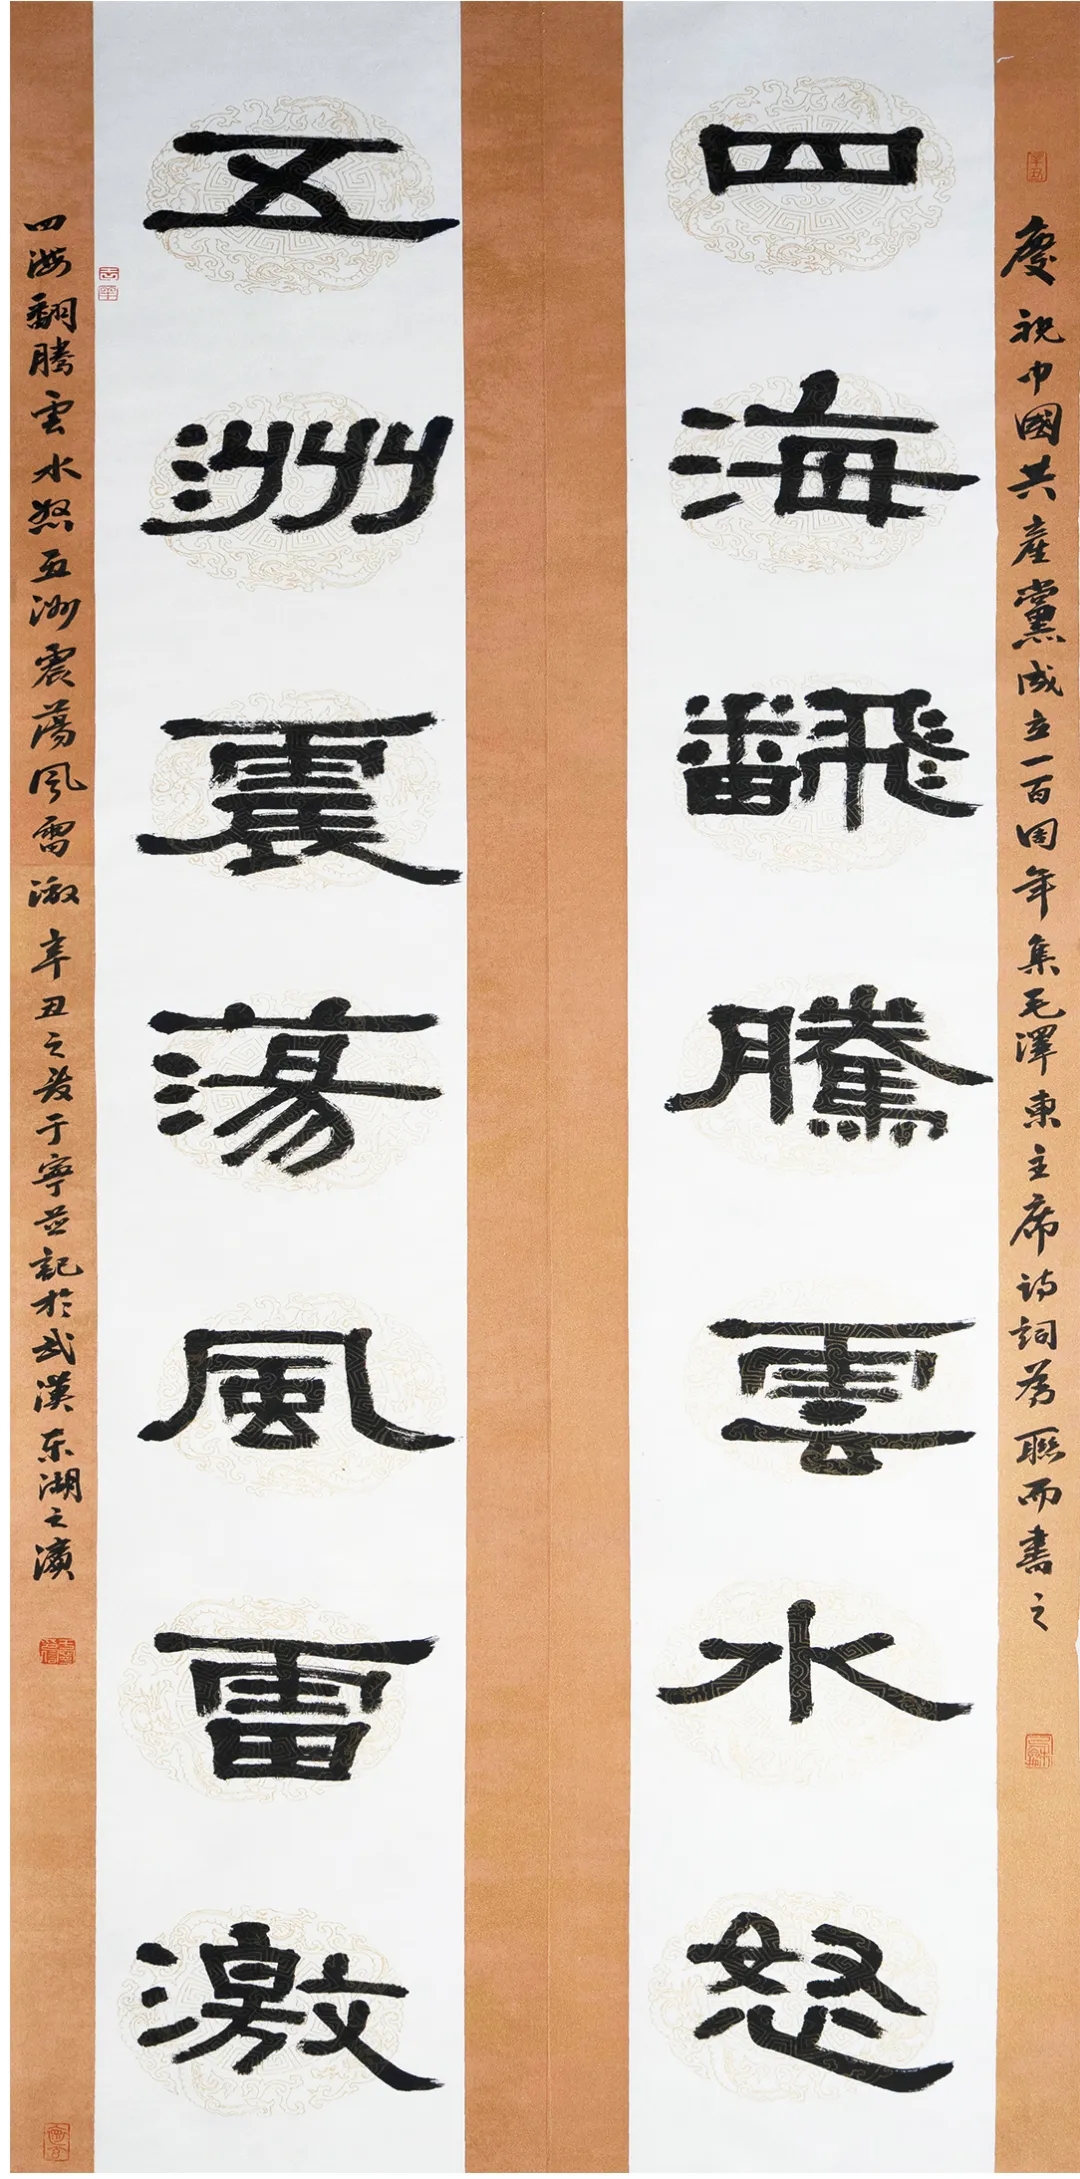 辛丑
慶祝中國共產黨成立一百周年集毛澤東主席詩詞為聯而書之
四海飜騰雲水怒
五洲震蕩風雷激
四海翻騰雲水怒五洲震蕩風雷激辛丑之夏于寧並記於武漢東湖之濱